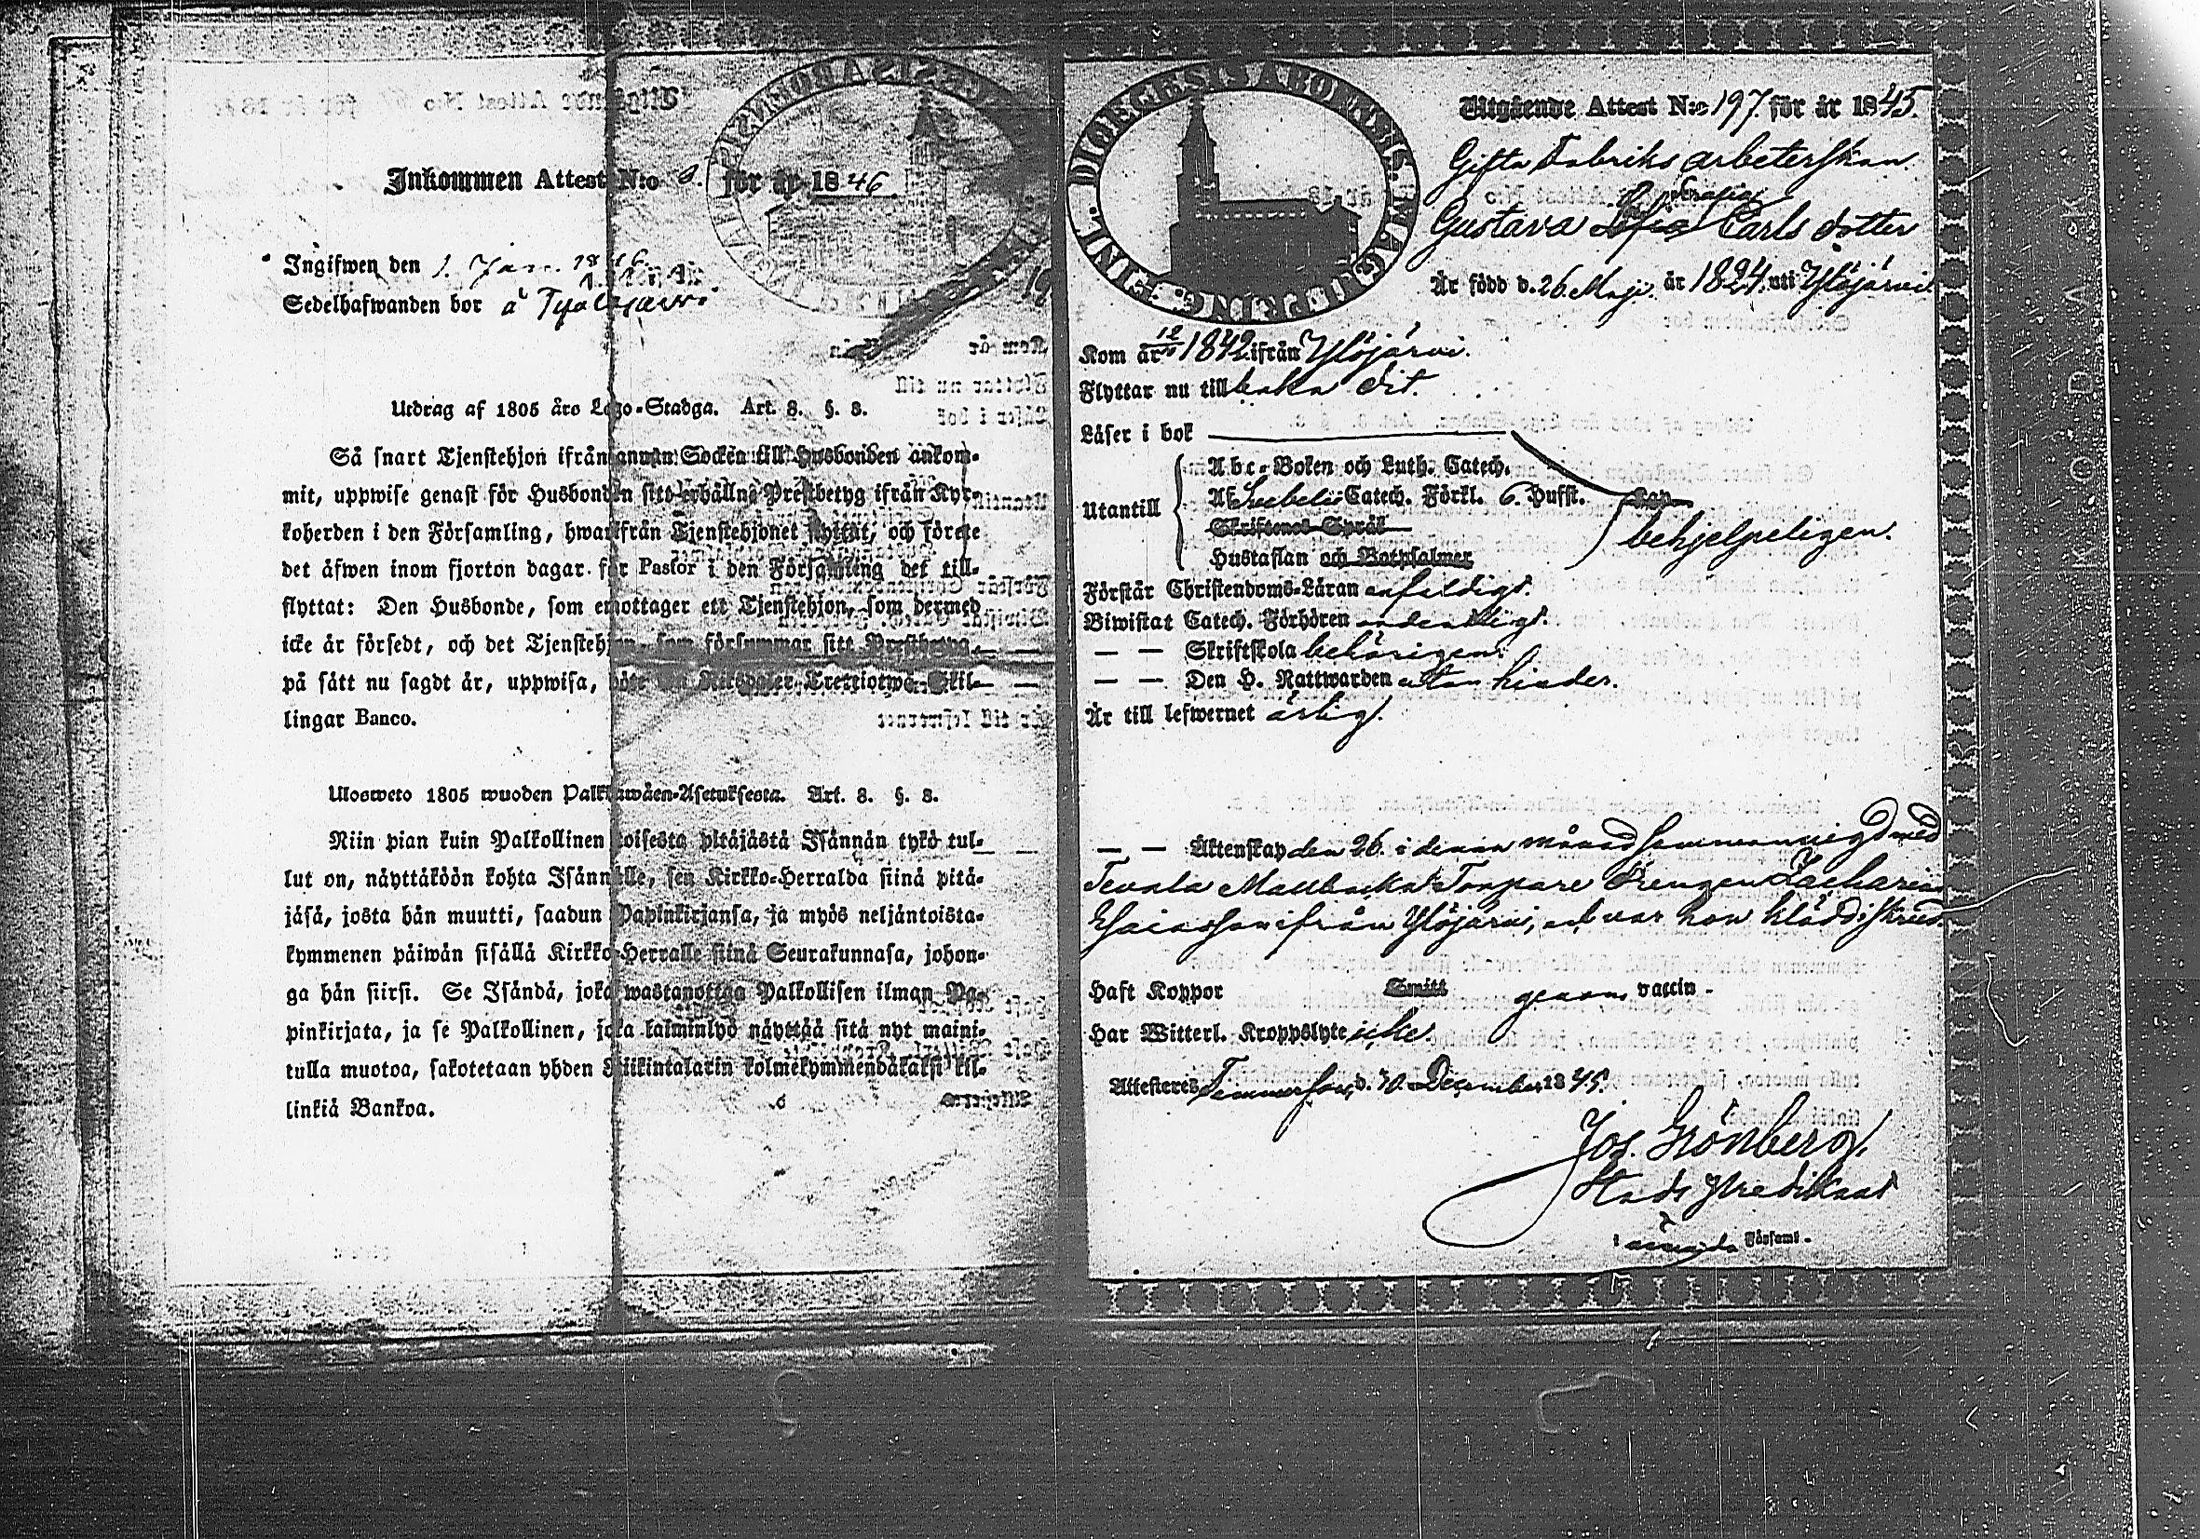 Inkommen Attest N:o 3. för år 1846
Ingifwen den 1. Jan. 1846
Sedelhafwanden bor å
Utdrag af 1805 års Lego-Stadga. Art. 8. §. 8.
Så snart Tjenstehjon ifrån annan Socken till Husbonden ankom-
mit, uppwise genast för Husbonden sitt erhållne Prestbetyg ifrån Kyr-
koherden i den Församling, hwarifrån Tjenstehjonet flyttat, och förete
det äfwen inom fjorton dagar för Pastor i den Församling det till-
flyttat: Den Husbonde, som emottager ett Tjenstehjon, som dermed
icke är försedt, och det Tjenstehjon, som försummar sitt Prestbetyg,
på sätt nu sagdt är, uppwisa, böte en Riksdaler Trettiotwå Skil-
lingar Banco.
Ulosweto 1805 wuoden Palkkawäen-Asetuksesta. Art. 8. §. 8.
Niin pian kuin Palkollinen toisesta pitäjästä Isännän tykö tul-
lut on, näyttäköön kohta Isännälle, sen Kirkko-Herralda siinä pitä-
jäsä, josta hän muutti, saadun Papinkirjansa, ja myös neljäntoista-
kymmenen päiwän sisällä Kirkko-Herralle siinä Seurakunnasa, johon-
ga hän siirsi. Se Isändä, joka wastanottaa Palkollisen ilman Pa-
pinkirjata, ja se Palkollinen, joka laiminlyö näyttää sitä nyt maini-
tulla muotoa, sakotetaan yhden Riikintalarin kolmekymmendäkaksi kil-
linkiä Bankoa.
Utgående Attest N:o 197 för år 1845.
Gifta Fabriks arbeterskan
Gustava Sofia Carls dotter
Är född d. 26. Maji. år 1824. uti Ylöjärvi
Kom år 12/10 1842 ifrån Ylöjärvi.
Flyttar nu till baka dit.
Läser i bok
Abc-Boken och Luth. Catech.
Af Svebelii Catech. Förkl. 6. Hufst.
Utantill
Skriftenes Språk
behjelpeligen.
Hustaflan och Botpsalmer
Förstår Christendoms-Läran enfaldigt.
Biwistat Catech. Förhören ordentligt.
— — Skriftskola behörigen.
— — Den H. Nattwarden utan hinder.
Är till lefwernet ärlig.
— — Äktenskap den 26. i denna månad sammanvigd med
Drengen Zacharias
Esaiasson ifrån Ylöjärvi, och var hon klädd i skrud.
Haft Koppor Smitt genom vaccin.
Har Witterl. Kroppslyte icke.
Attesteres Tammerfors, d. 30 December 1845.
Jos. Grönberg.
Stads Predikant
i Församl.
DIOECESIS ABOENSIS. MAG. PRINC. FINL.
KODAK